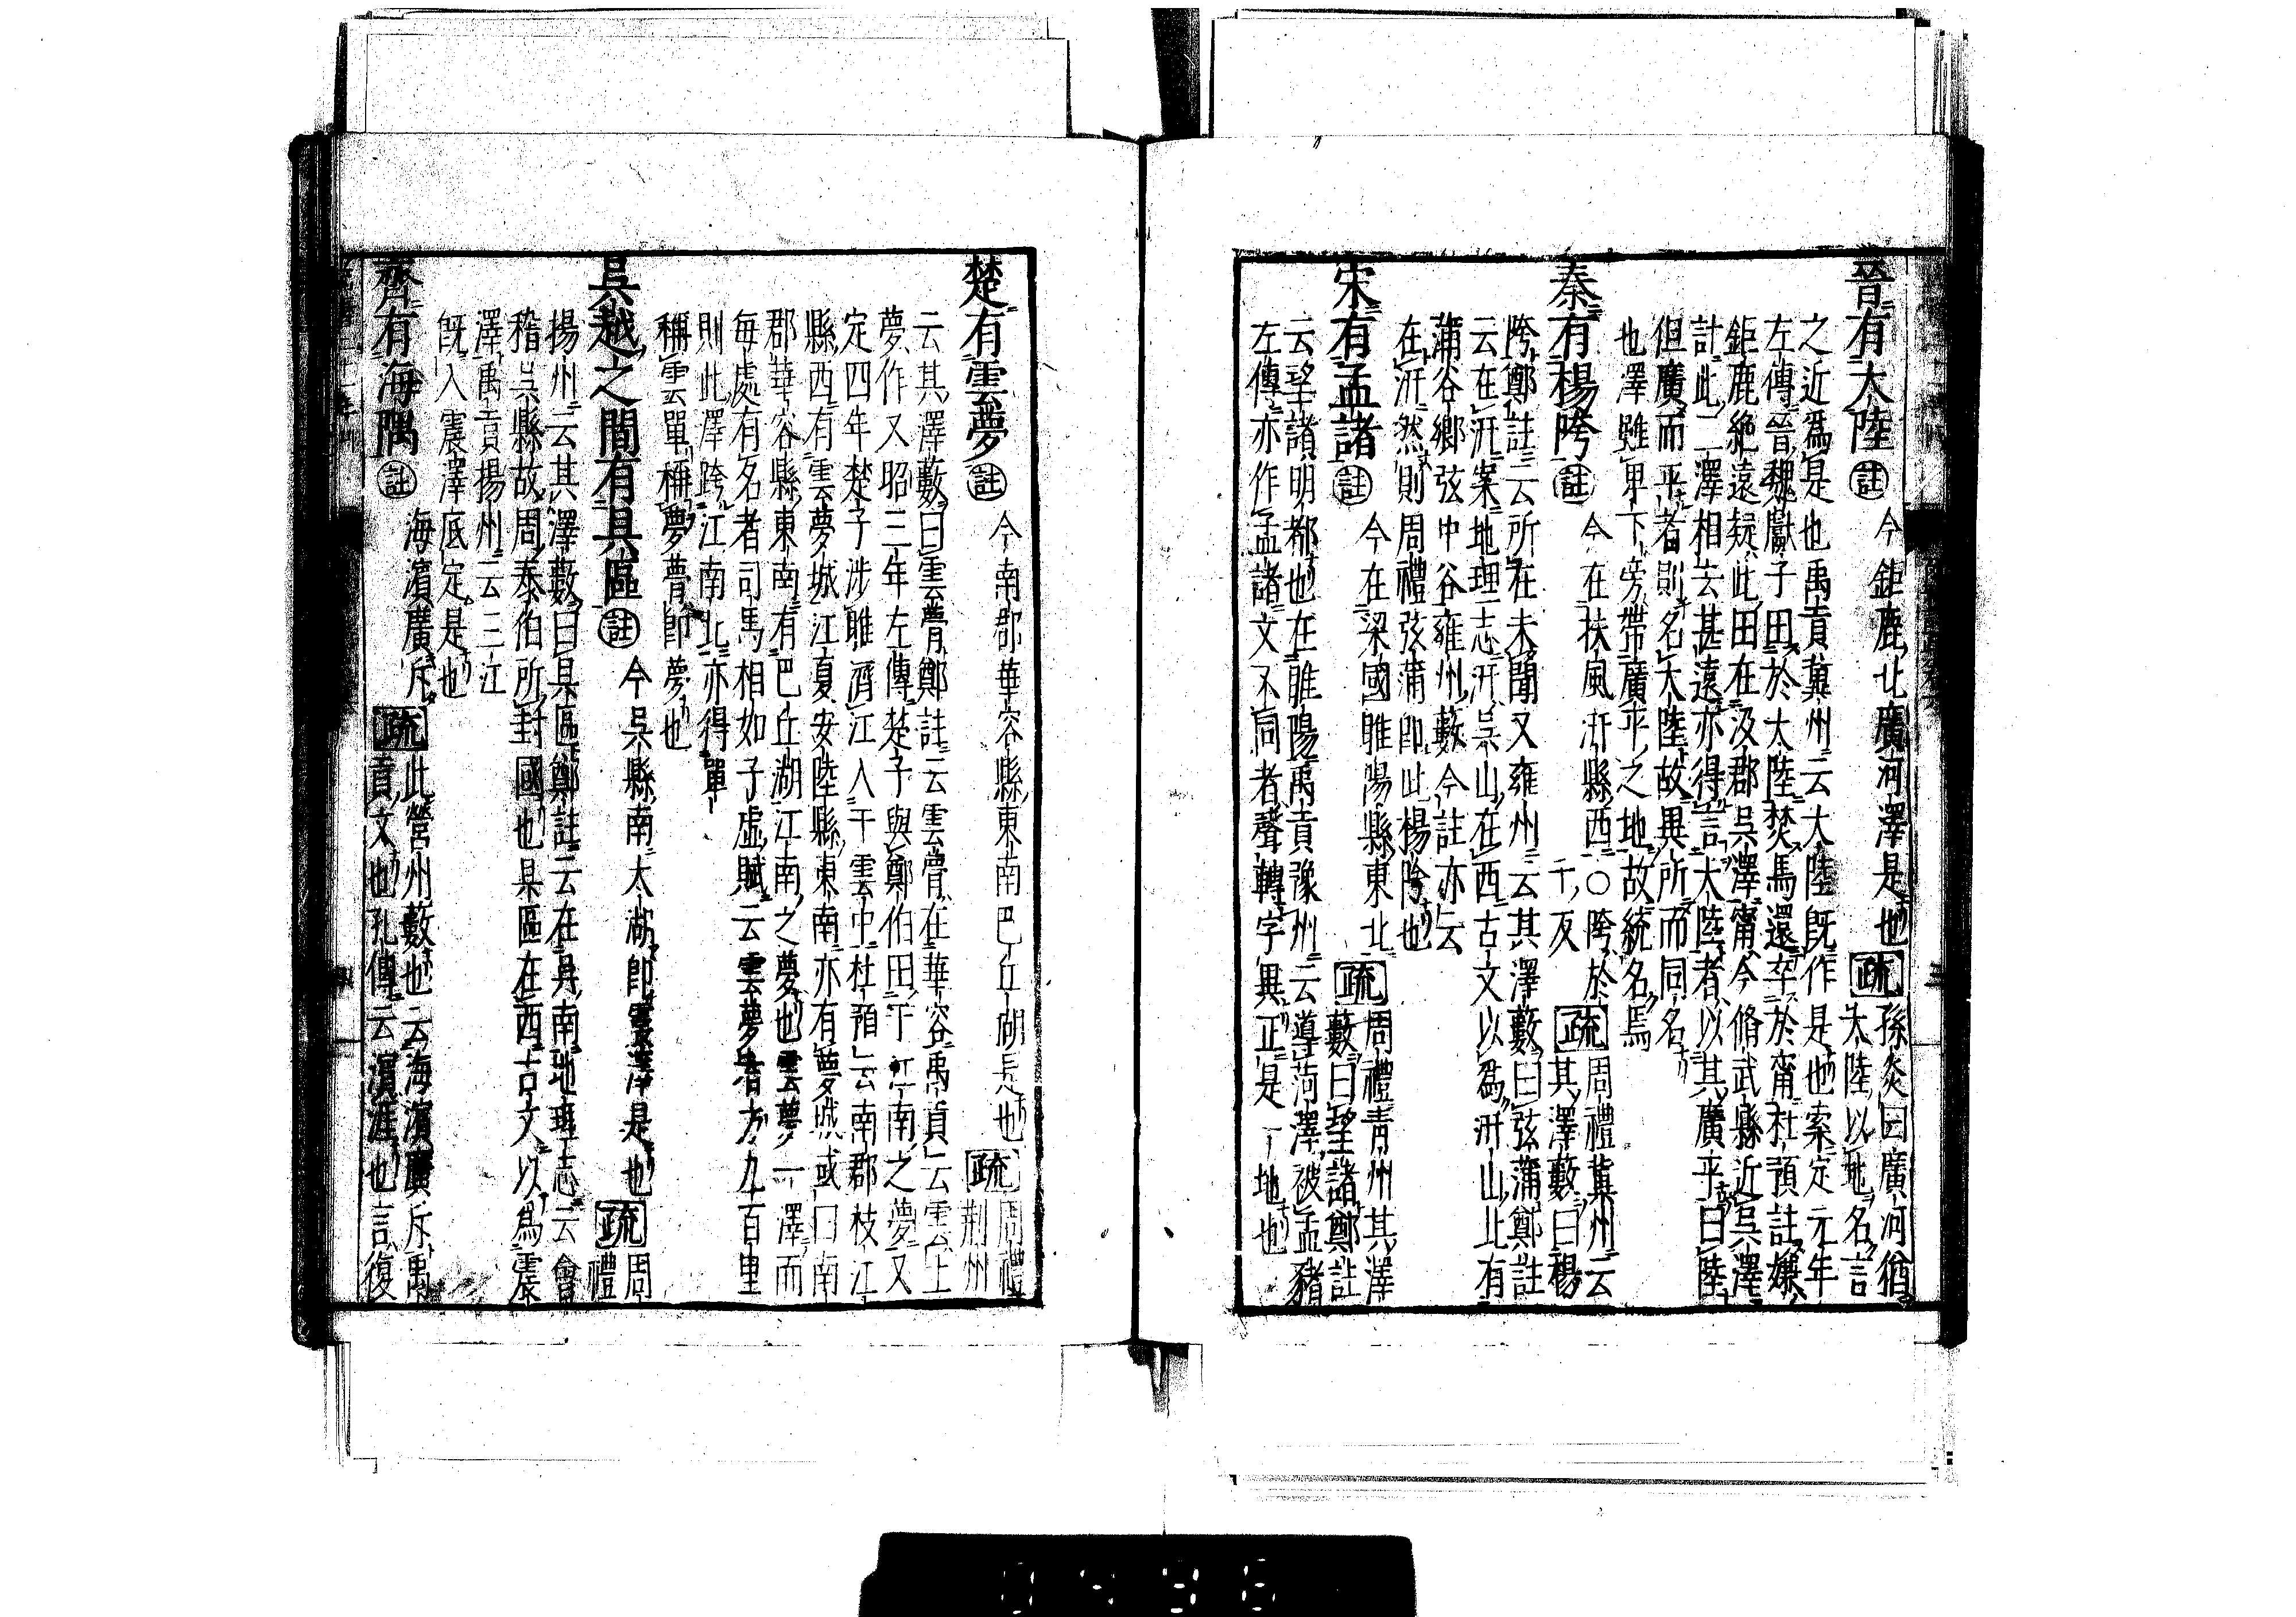 晉有大陸 註 今鉅鹿北廣河澤是也 疏 孫炎曰廣河猶
大陸以地名言
之近爲是也禹貢冀州云大陸旣作是也案定元年
左傳晉魏獻子田於大陸焚馬還卒於甯杜預註嫌
鉅鹿絶遠疑此田在汲郡吳澤甯今脩武縣近吳澤
計此二澤相去甚遠亦得言大陸者以其廣平曰陸
但廣而平者則名大陸故異所而同名
也澤雖卑下旁帶廣平之地故統名焉
秦有楊陓 註 今在扶風汧縣西○陓於
于反 疏 周禮冀州云
其澤藪曰楊
陓鄭註云所在未聞又雍州云其澤藪曰弦蒲鄭註
云在汧案地理志汧吳山在西古文以爲汧山北有
蒲谷鄉弦中谷雍州藪今註亦云
在汧然則周禮弦蒲卽此楊陓也
宋有孟諸 註 今在梁國睢陽縣東北 疏 周禮青州其澤
藪曰望諸鄭註
云望諸明都也在睢陽禹貢豫州云導菏澤被孟豬
左傳亦作孟諸文不同者聲轉字異正是一地也
楚有雲夢 註 今南郡華容縣東南巴丘湖是也 疏 周禮
荆州
云其澤藪曰雲瞢鄭註云雲瞢在華容禹貢云雲土
夢作又昭三年左傳楚子與鄭伯田于江南之夢又
定四年楚子涉睢濟江入于雲中杜預云南郡枝江
縣西有雲夢城江夏安陸縣東南亦有夢城或曰南
郡華容縣東南有巴丘湖江南之夢也雲夢一澤而
每處有名者司馬相如子虛賦云雲夢者方九百里
則此澤跨江南北亦得單
稱雲單稱夢瞢卽夢也
吳越之間有具區 註 今吳縣南太湖卽震澤是也 疏 周
禮
揚州云其澤藪曰具區鄭註云在吳南地理志云會
稽吳縣故周泰伯所封國也具區在西古文以爲震
澤禹貢揚州云三江
旣入震澤底定是也
齊有海隅 註 海濱廣斥 疏 此營州藪也云海濱廣斥禹
貢文也孔傳云濱涯也言復